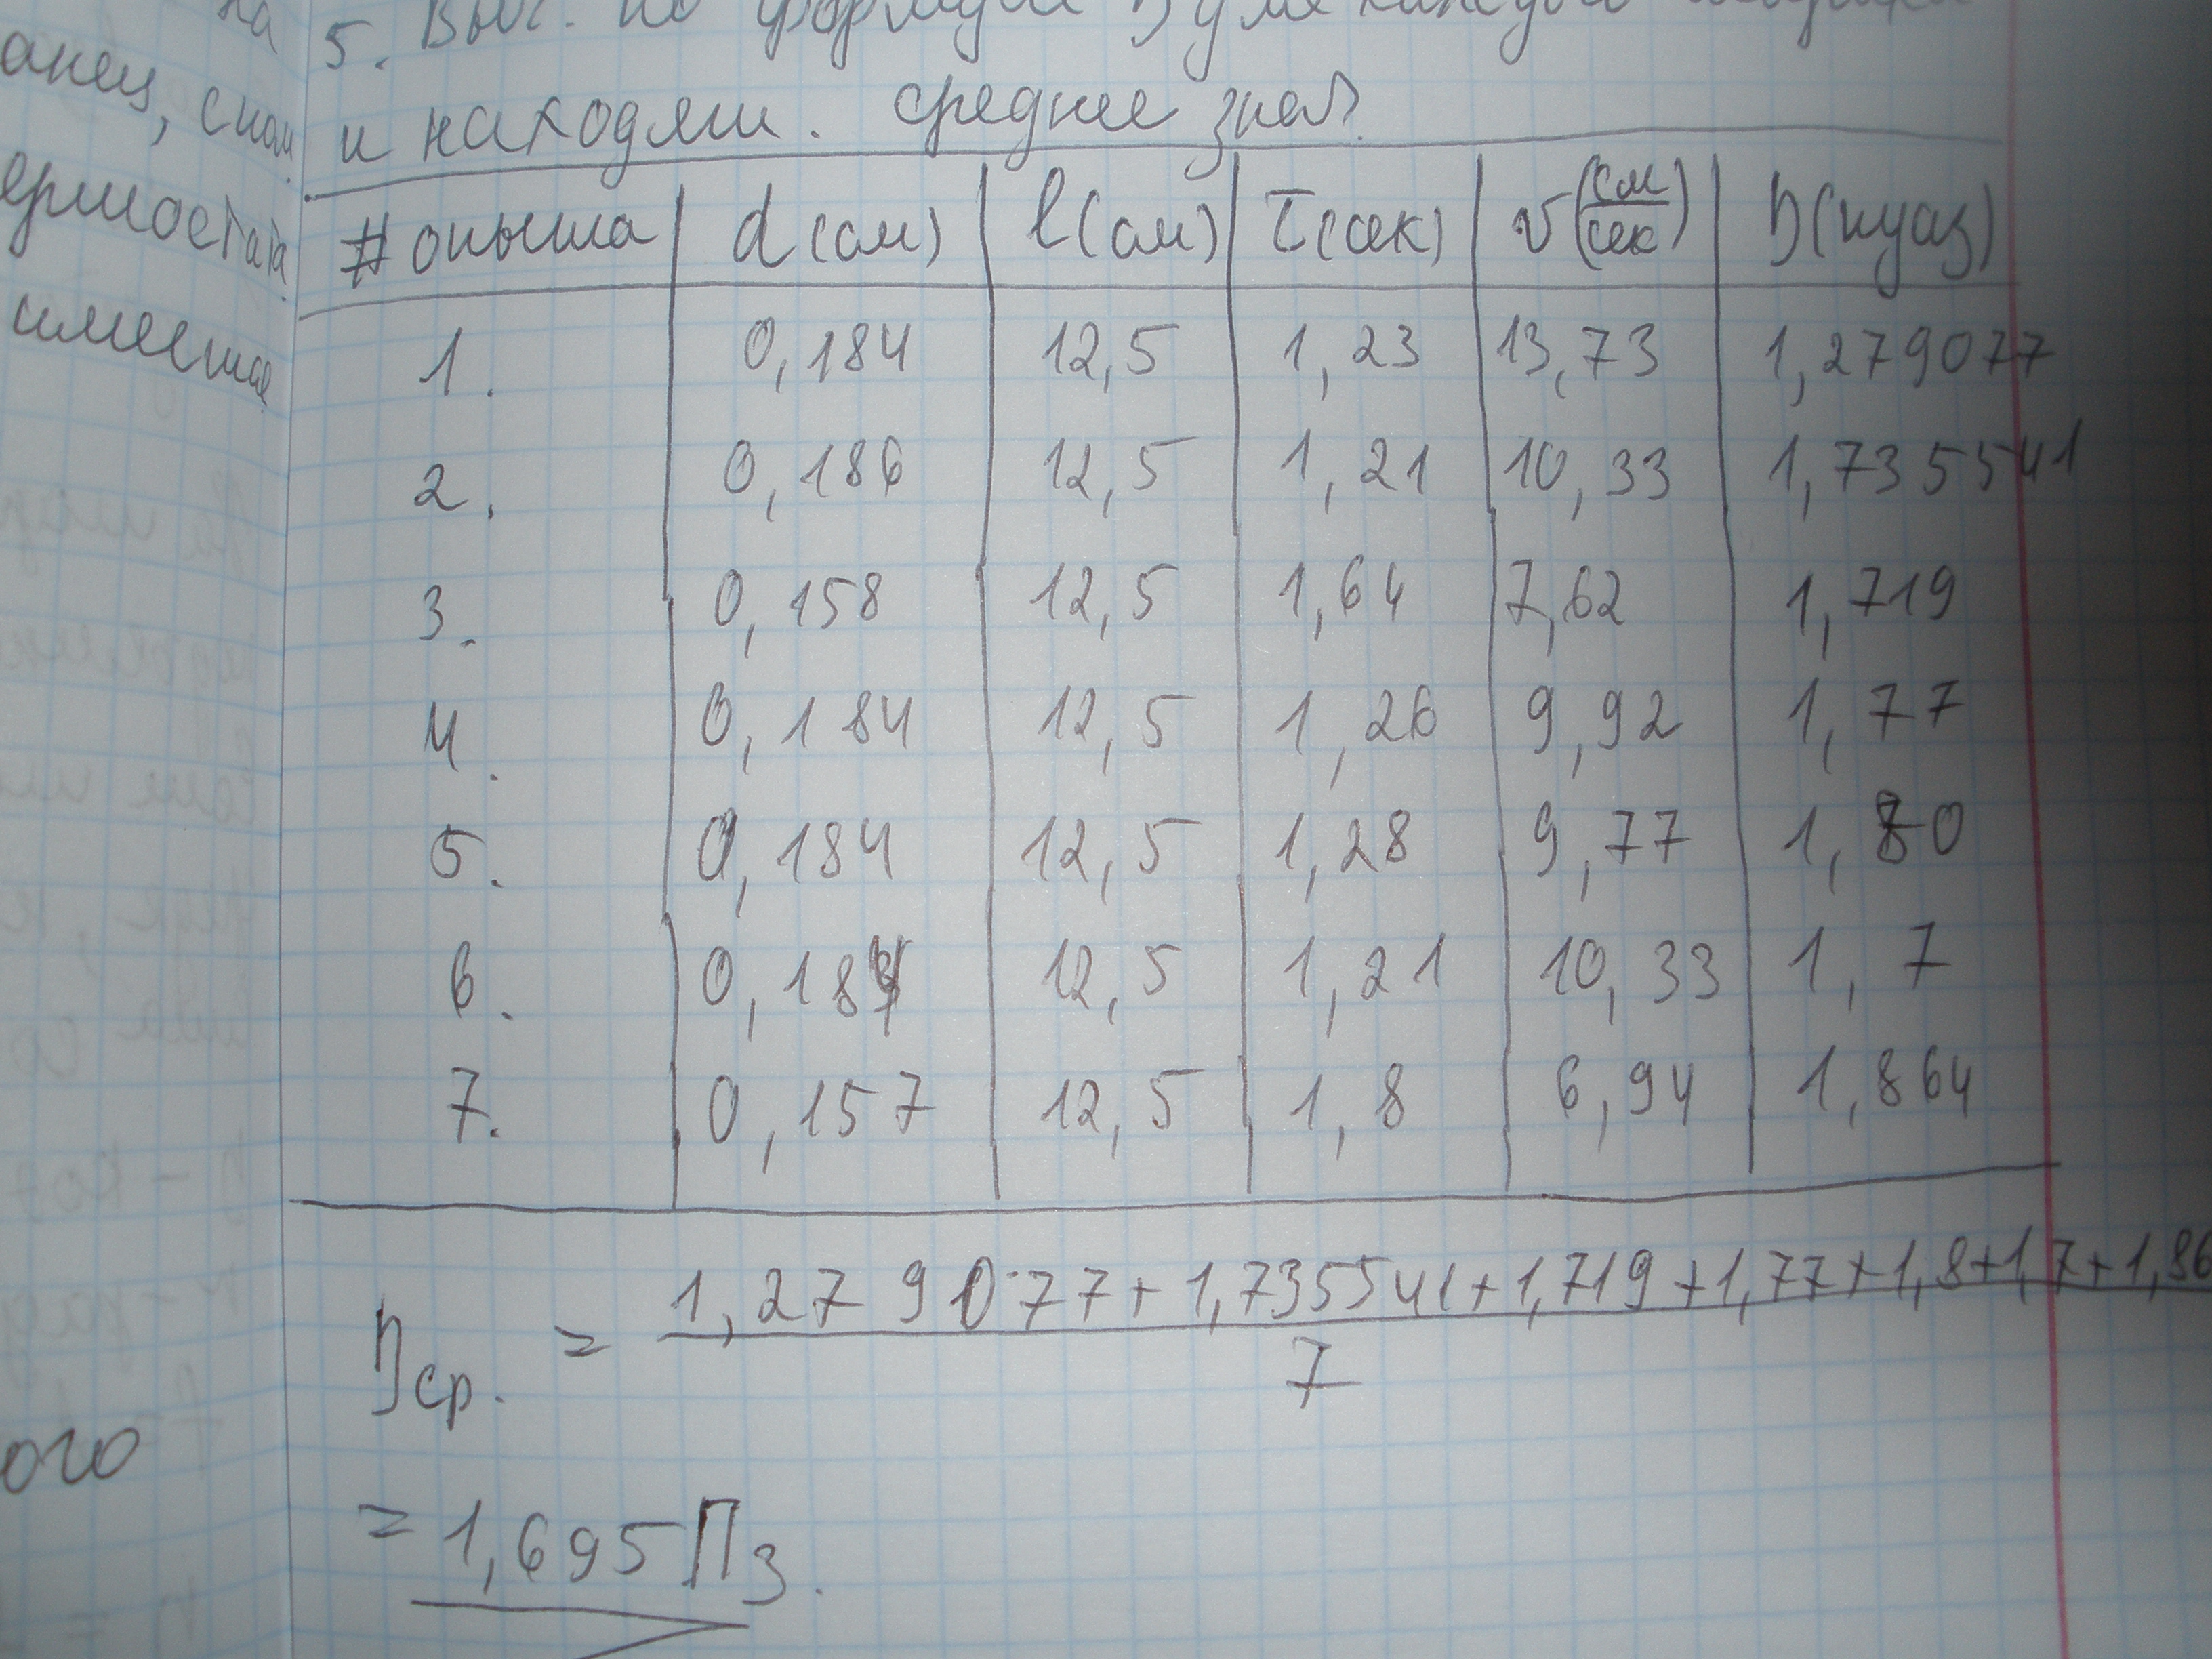 на
анец, сном
ермостата
имеета
ого
5. Выч. по формуле η для каждого
и находят. среднее знач.
# опыта d(см) l(см) τ(сек) v(см/сек) η(пуаз)
1. 0,184 12,5 1,23 13,73 1,279077
2. 0,186 12,5 1,21 10,33 1,7355541
3. 0,158 12,5 1,64 7,62 1,719
4. 0,184 12,5 1,26 9,92 1,77
5. 0,184 12,5 1,28 9,77 1,80
6. 0,184 12,5 1,21 10,33 1,7
7. 0,157 12,5 1,8 6,94 1,864
ηср. = 1,279077+1,7355541+1,719+1,77+1,8+1,7+1,86
7
= 1,695 Пз.